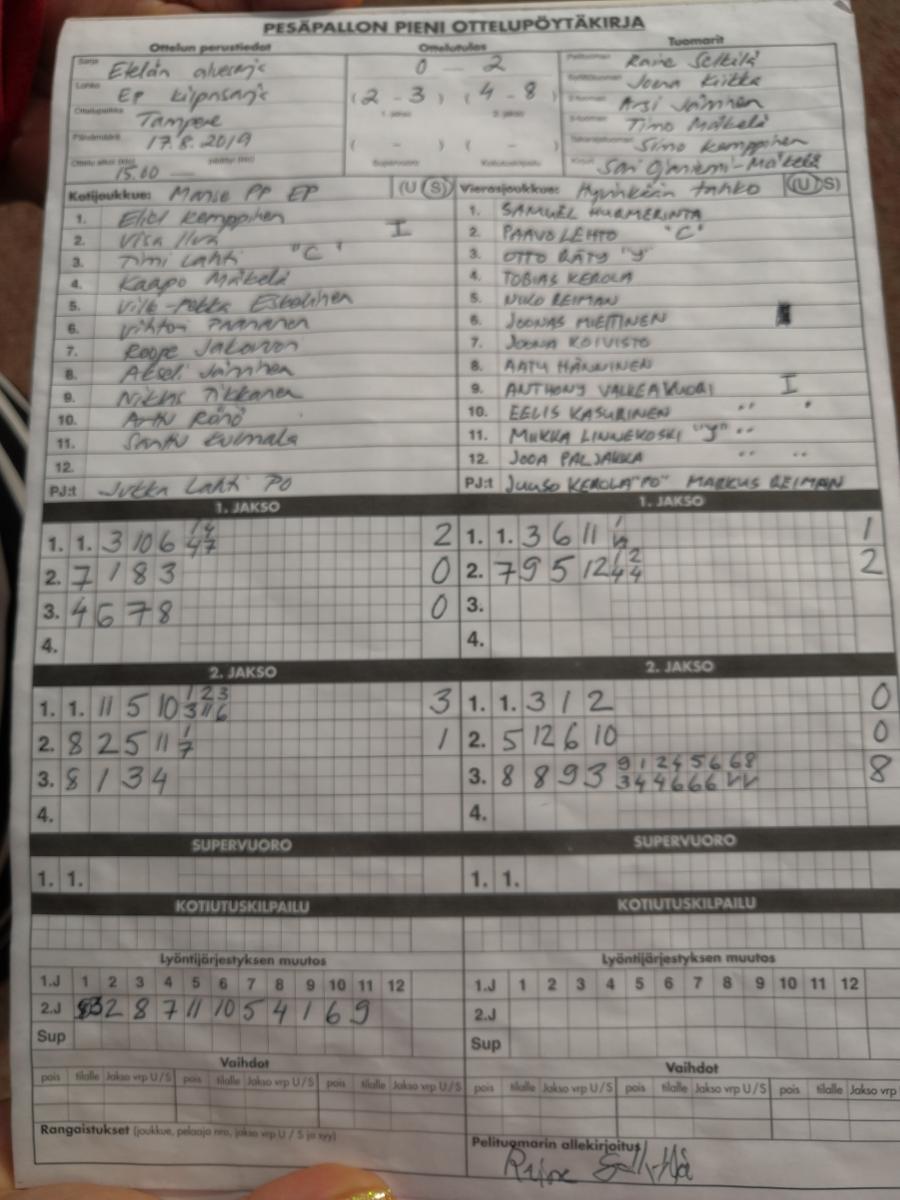 PESÄPALLON PIENI OTTELUPÖYTÄKIRJA
Ottelun perustiedot Ottelutulos Tuomarit
Sarja Etelän aluesarja 0 - 2 Pelituomari
Lohko EP kilpasarja (2 - 3) (4 - 8) Joona
Ottelupaikka Tampere 1. jakso 2. jakso Arsi Jäminen
Päivämäärä 17.8.2019 ( - ) ( - ) Timo Mäkelä
Ottelu alkoi (klo) 15.00 päättyi (klo) Supervuoro Kotiutuskilpailu Simo Kemppinen
Kirjuri Sari Ojaniemi-Mäkelä
Kotijoukkue: Manse PP EP (U S) Vierasjoukkue: Hyvinkään Tahko (U S)
1. Eliel Kemppinen 1. SAMUEL HURMERINTA
2. Visa I 2. PAAVO LEHTO "C"
3. Timi Lahti "C" 3. OTTO RÄTY "J"
4. Kaapo Mäkelä 4. TOBIAS KEROLA
5. Ville-Pekka Eskelinen 5. NIKO REIMAN
6. Vihtori Paananen 6. JOONAS MIETTINEN
7. Roope 7. JOONA KOIVISTO
8. Akseli Jäminen 8. AATU HÄNNINEN
9. Niklas Tikkanen 9. ANTHONY VALKEAVUORI I
10. Arttu Rönö 10. EELIS KASURINEN "
11. Santtu Kulmala 11. MIIKKA LINNEKOSKI "J" "
12. 12. JOOA PALJAKKA " "
PJ:t Jukka Lahti PO PJ:t JUUSO KEROLA "PO" MARKUS REIMAN
1. JAKSO 1. JAKSO
1. 1. 3 10 6 1/4 4/7 2 1. 1. 3 6 11 1
2. 7 1 8 3 0 2. 7 9 5 12 1/4 2/4 2
3. 4 6 7 8 0 3.
4. 4.
2. JAKSO 2. JAKSO
1. 1. 11 5 10 1/3 2/11 3/6 3 1. 1. 3 1 2 0
2. 8 2 5 11 1/7 1 2. 5 12 6 10 0
3. 8 1 3 4 3. 8 8 9 3 9/3 1/4 2/4 4/6 5/6 6/6 6/V 8/V 8
4. 4.
SUPERVUORO SUPERVUORO
1. 1. 1. 1.
KOTIUTUSKILPAILU KOTIUTUSKILPAILU
Lyöntijärjestyksen muutos Lyöntijärjestyksen muutos
1.J 1 2 3 4 5 6 7 8 9 10 11 12 1.J 1 2 3 4 5 6 7 8 9 10 11 12
2.J 3 2 8 7 11 10 5 4 1 6 9 2.J
Sup Sup
Vaihdot Vaihdot
pois tilalle Jakso vrp U/S pois tilalle Jakso vrp U/S pois tilalle Jakso vrp U/S pois tilalle Jakso vrp U/S pois tilalle Jakso vrp U/S pois tilalle Jakso vrp
Rangaistukset (joukkue, pelaaja nro, jakso vrp U / S ja syy) Pelituomarin allekirjoitus